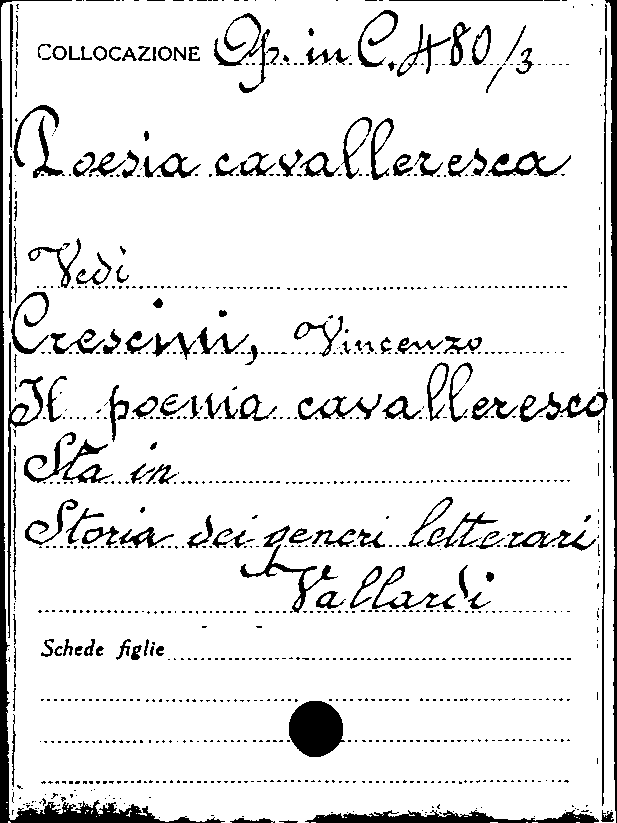 COLLOCAZIONE Op. in C. 480/3
Poesia cavalleresca
Vedi
Crescini, Vincenzo
Il poema cavalleresco
Sta in
Storia dei generi letterari
Vallardi
Schede figlie